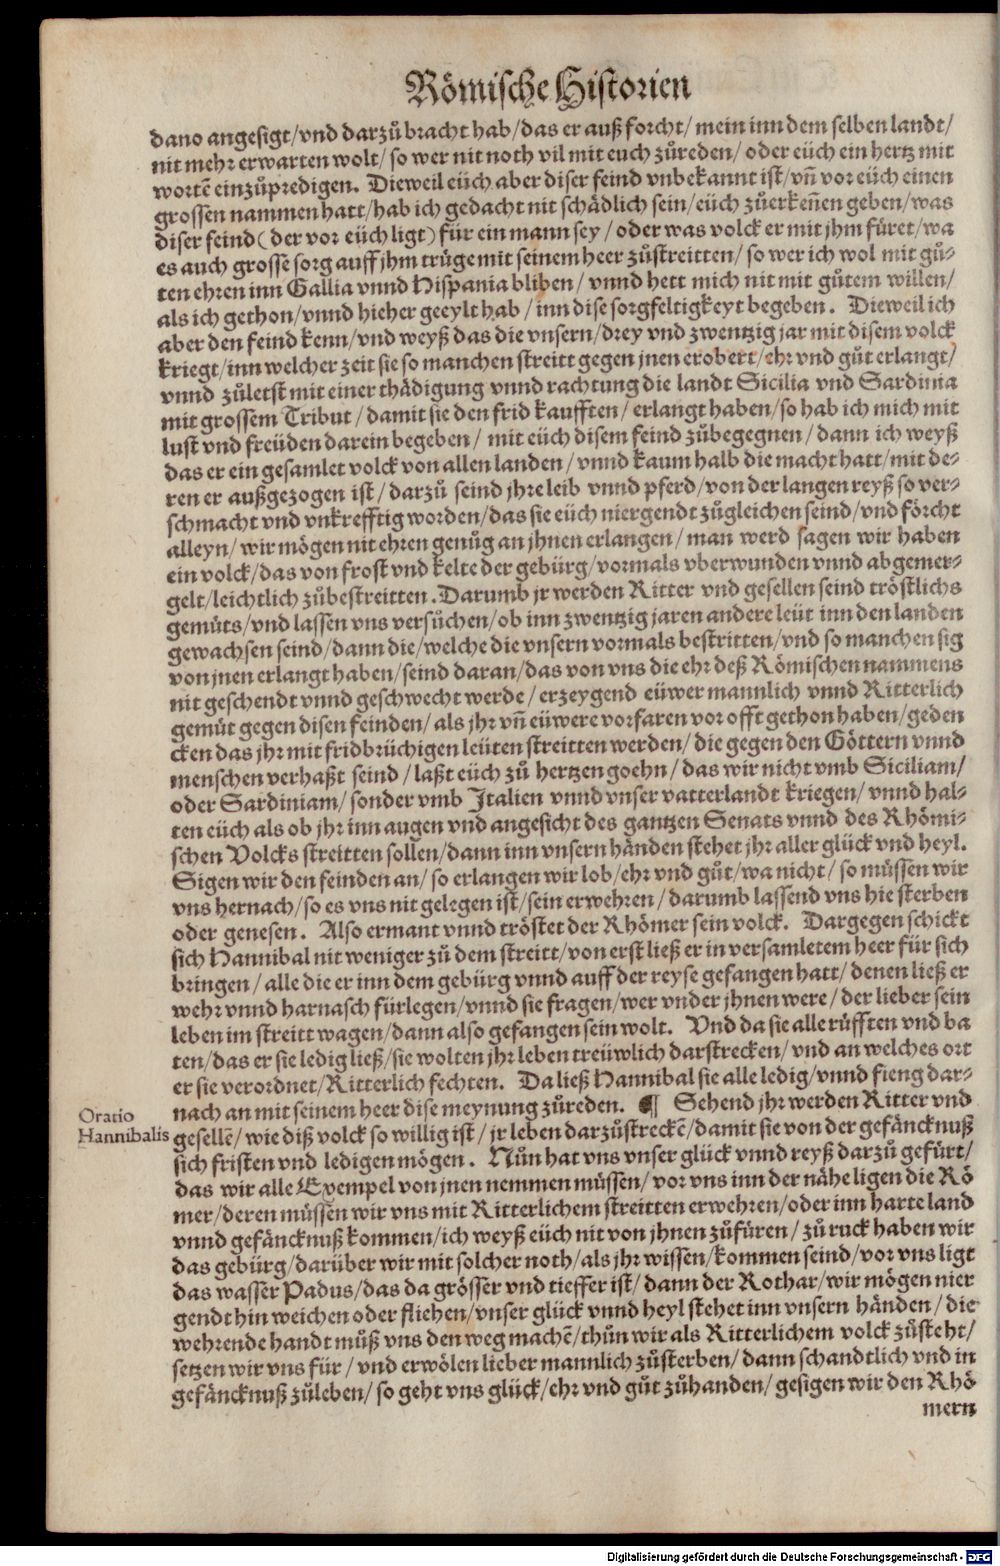 Römische Historien
dano angesigt/vnd darzů bracht hab/das er auß forcht/mein inn dem selben landt/
nit mehr erwarten wolt/so wer nit noch vil mit euch zůreden/oder eüch ein hertz mit
wortē einzůpredigen. Dieweil eüch aber diser feind vnbekannt ist/vn̄ vor eüch einen
grossen nammen hatt/hab ich gedacht nit schädlich sein/eüch zůerkeñen geben/was
diser feind (der vor eüch ligt) für ein mann sey/oder was volck er mit jhm füret/wa
es auch grosse sorg auff jhm trüge mit seinem heer zůstreitten/so wer ich wol mit gů-
ten ehren inn Gallia vnnd Hispania bliben/vnnd hett mich nit mit gůtem willen/
als ich gethon/vnnd hieher geeylt hab/inn dise sorgfeltigkeyt begeben. Dieweil ich
aber den feind kenn/vnd weyß das die vnsern/drey vnd zwentzig jar mit disem volck
kriegt/inn welcher zeit sie so manchen streitt gegen jnen erobert/ehr vnd gůt erlangt/
vnnd zůletst mit einer thädigung vnnd rachtung die landt Sicilia vnd Sardinia
mit grossem Tribut/damit sie den frid kaufften/erlangt haben/so hab ich mich mit
lust vnd freüden darein begeben/mit eüch disem feind zůbegegnen/dann ich weyß
das er ein gesamlet volck von allen landen/vnnd kaum halb die macht hatt/mit de-
ren er außgezogen ist/darzů seind jhre leib vnnd pferd/von der langen reyß so ver-
schmacht vnd vnkrefftig worden/das sie eüch niergendt zůgleichen seind/vnd förcht
alleyn/wir mögen nit ehren genůg an jhnen erlangen/man werd sagen wir haben
ein volck/das von frost vnd kelte der gebürg/vormals vberwunden vnnd abgemer-
gelt/leichtlich zůbestreitten. Darumb jr werden Ritter vnd gesellen seind tröstlichs
gemüts/vnd lassen vns versůchen/ob inn zwentzig jaren andere leüt inn den landen
gewachsen seind/dann die/welche die vnsern vormals bestritten/vnd so manchen sig
von jnen erlangt haben/seind daran/das von vns die ehr deß Römischen nammens
nit geschendt vnnd geschwecht werde/erzeygend eüwer mannlich vnnd Ritterlich
gemüt gegen disen feinden/als jhr vn̄ eüwere vorfaren vor offt gethon haben/geden
cken das jhr mit fridbrüchigen leüten streitten werden/die gegen den Göttern vnnd
menschen verhaßt seind/laßt eüch zů hertzen goehn/das wir nicht vmb Siciliam/
oder Sardiniam/sonder vmb Italien vnnd vnser vatterlandt kriegen/vnnd hal-
ten eüch als ob jhr inn augen vnd angesicht des gantzen Senats vnnd des Rhömi-
schen Volcks streitten sollen/dann inn vnsern händen stehet jhr aller glück vnd heyl.
Sigen wir den feinden an/so erlangen wir lob/ehr vnd gůt/wa nicht/so müssen wir
vns hernach/so es vns nit gelegen ist/sein erwehren/darumb lassend vns hie sterben
oder genesen. Also ermant vnnd tröstet der Rhömer sein volck. Dargegen schickt
sich Hannibal nit weniger zů dem streitt/von erst ließ er in versamletem heer für sich
bringen/alle die er inn dem gebürg vnnd auff der reyse gefangen hatt/denen ließ er
wehr vnnd harnasch fürlegen/vnnd sie fragen/wer vnder jhnen were/der lieber sein
leben im streitt wagen/dann also gefangen sein wolt. Vnd da sie alle růfften vnd ba
ten/das er sie ledig ließ/sie wolten jhr leben treüwlich darstrecken/vnd an welches ort
er sie verordnet/Ritterlich fechten. Da ließ Hannibal sie alle ledig/vnnd fieng dar-
nach an mit seinem heer dise meynung zůreden. ¶ Sehend jhr werden Ritter vnd
Oratio
Hannibalis
gesellē/wie diß volck so willig ist/jr leben darzůstreckē/damit sie von der gefäncknuß
sich fristen vnd ledigen mögen. Nůn hat vns vnser glück vnnd reyß darzů gefürt/
das wir alle Exempel von jnen nemmen müssen/vor vns inn der nähe ligen die Rö
mer/deren müssen wir vns mit Ritterlichem streitten erwehren/oder inn harte land
vnnd gefäncknuß kommen/ich weyß eüch nit von jhnen zůfüren/zů ruck haben wir
das gebürg/darüber wir mit solcher noth/als jhr wissen/kommen seind/vor vns ligt
das wasser Padus/das da grösser vnd tieffer ist/dann der Rothar/wir mögen nier
gendt hin weichen oder fliehen/vnser glück vnnd heyl stehet inn vnsern händen/die
wehrende handt můß vns den weg machē/thůn wir als Ritterlichem volck zůsteht/
setzen wir vns für/vnd erwölen lieber mannlich zůsterben/dann schandtlich vnd in
gefäncknuß zůleben/so geht vns glück/ehr vnd gůt zůhanden/gesigen wir den Rhö
mern
Digitalisierung gefördert durch die Deutsche Forschungsgemeinschaft - DFG